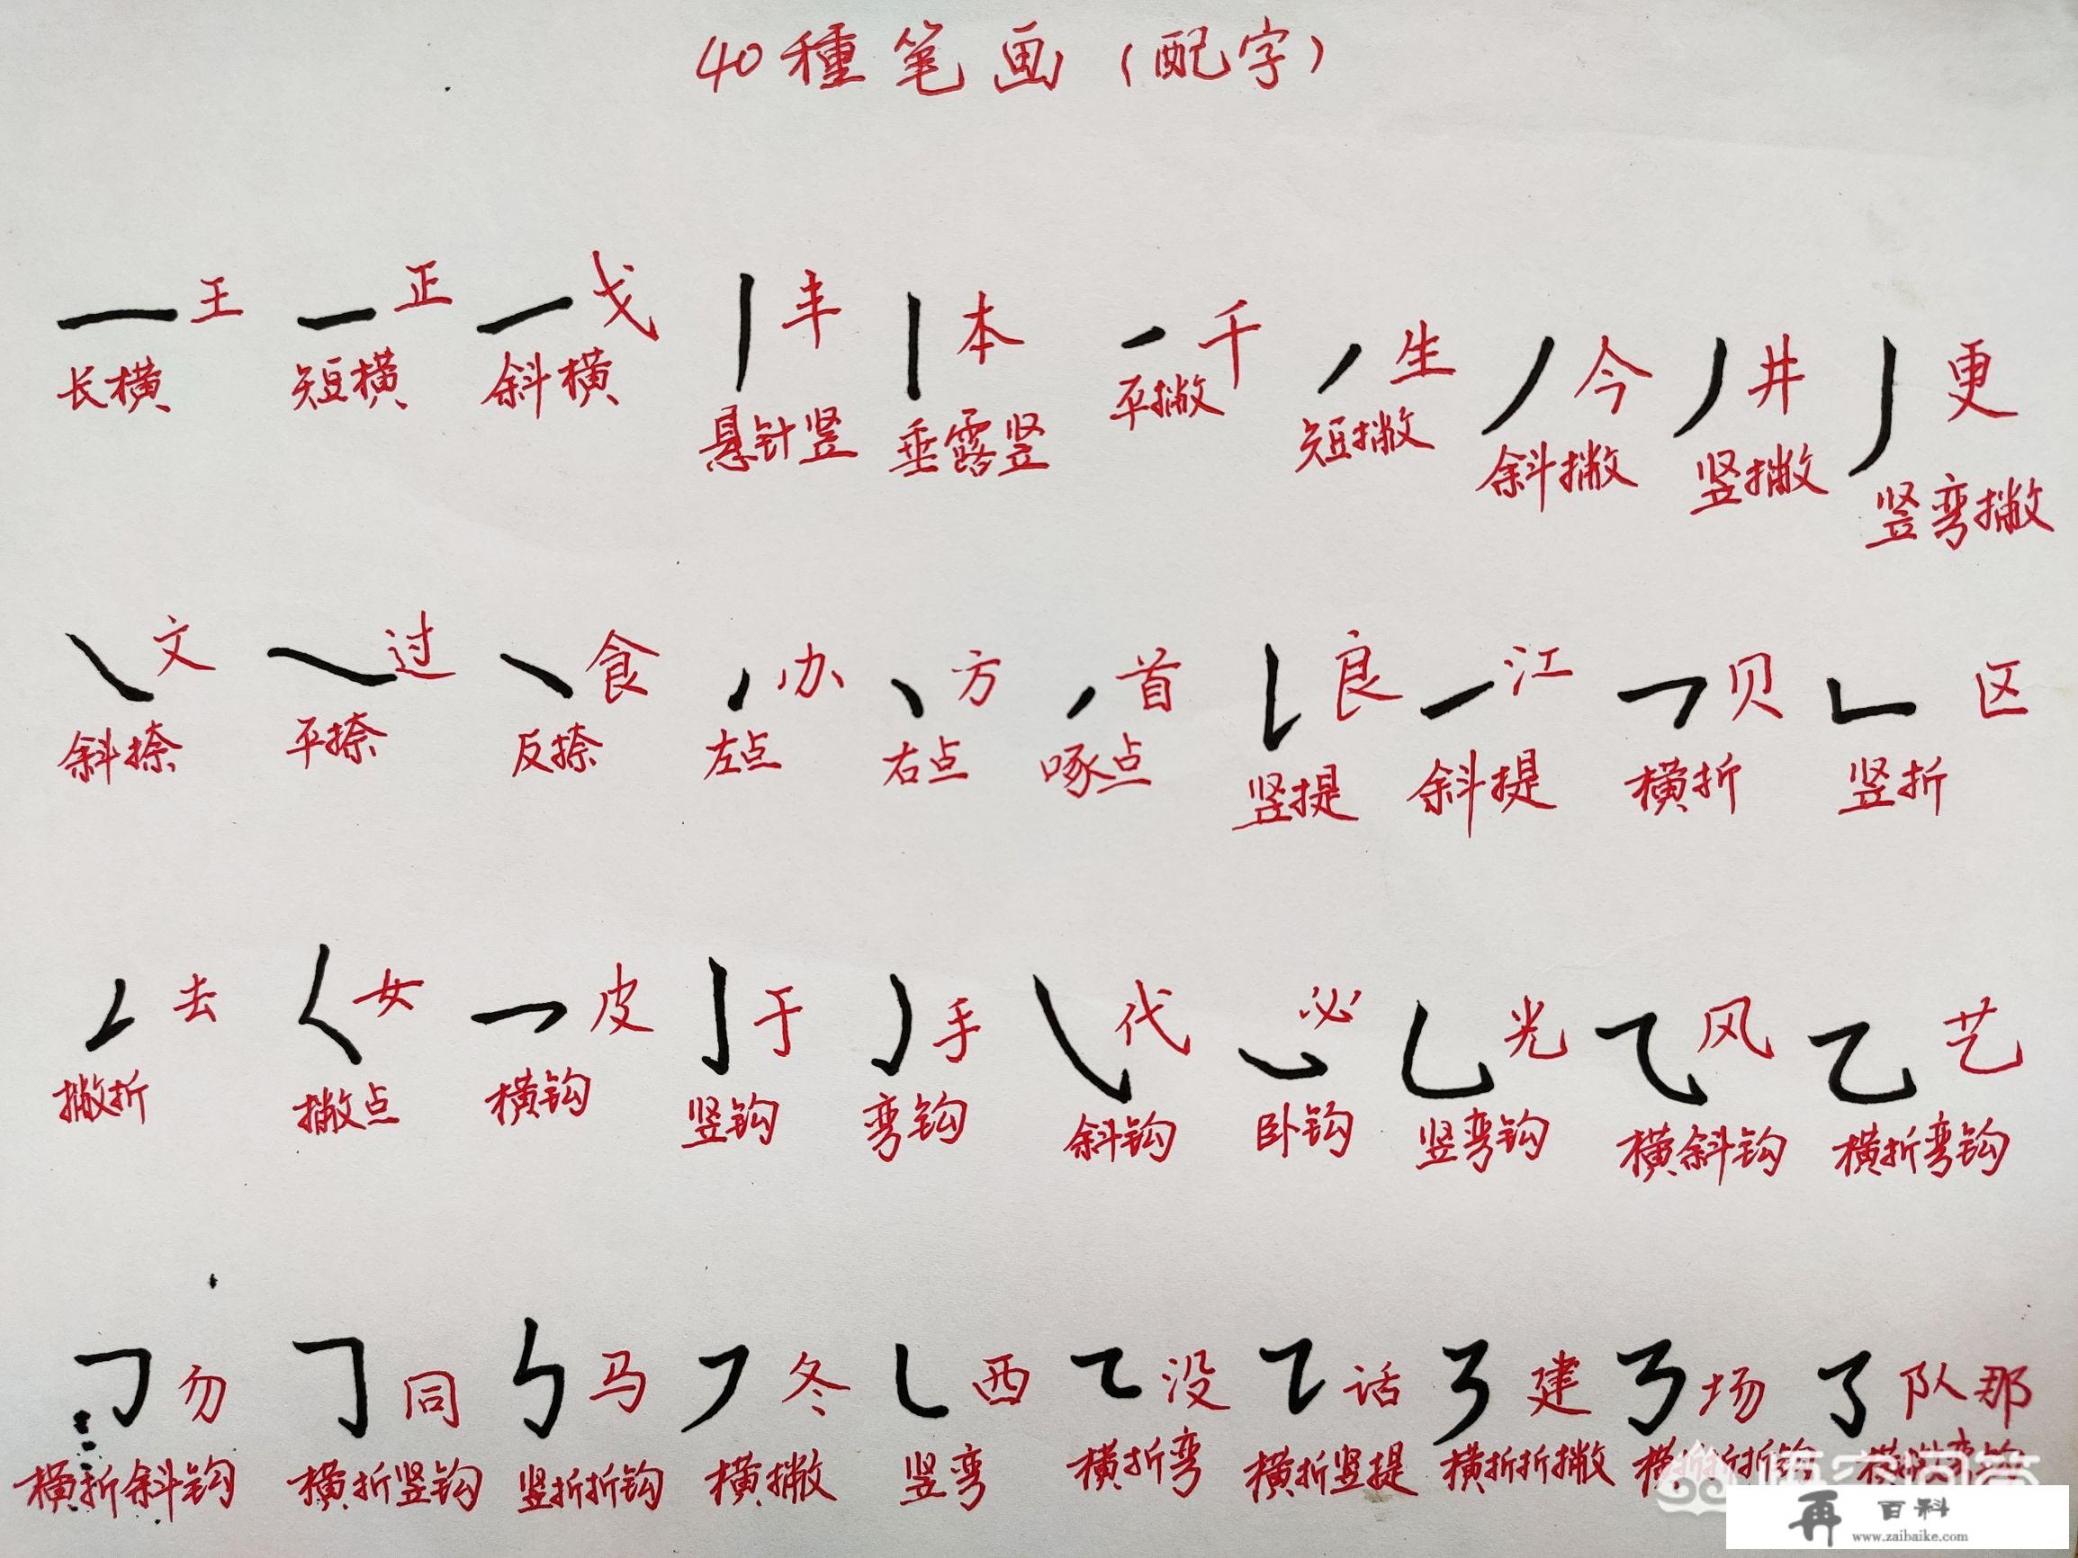 40種笔画(配字)
王 正 戈 丰 本 千 生 今 井 更
长横 短横 斜横 悬针竖 垂露竖 平撇 短撇 斜撇 竖撇 竖弯撇
文 过 食 办 方 首 良 江 贝 区
斜捺 平捺 反捺 左点 右点 啄点 竖提 斜提 横折 竖折
去 女 皮 于 手 代 必 光 风 艺
撇折 撇点 横钩 竖钩 弯钩 斜钩 卧钩 竖弯钩 横斜钩 横折弯钩
勿 同 马 冬 西 没 话 建 场 队那
横折斜钩 横折竖钩 竖折折钩 横撇 竖弯 横折弯 横折竖提 横折折撇 横折折折钩 横撇弯钩
悟空问答
再 百科
www.zaibaike.com